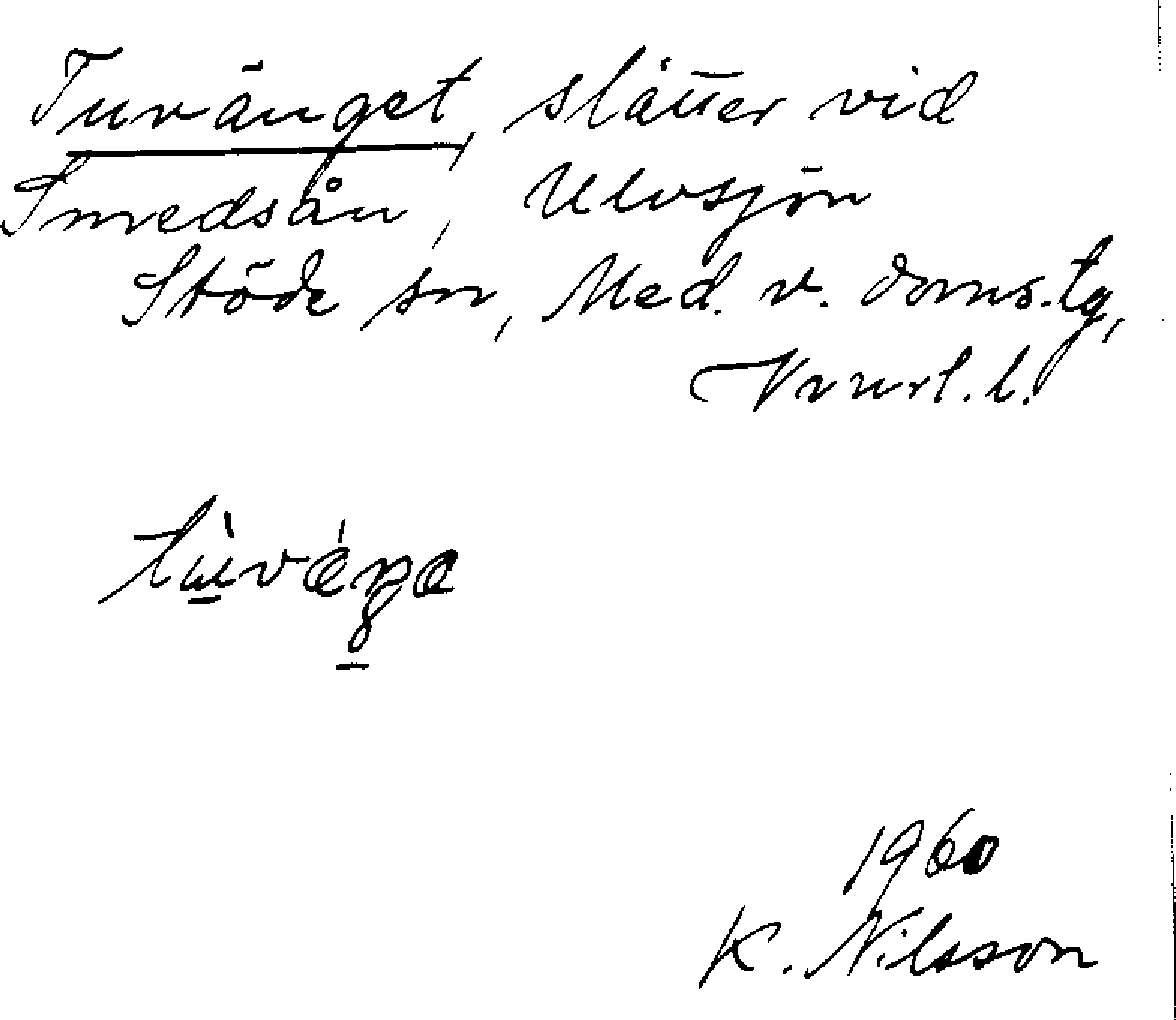 Tuvänget, slåtter vid
Smedsån, Ulvsjön
Stöde sn, Med. v. doms.tg,
Vnrl. l.
tùvǽŋa
1960
K. Nilsson